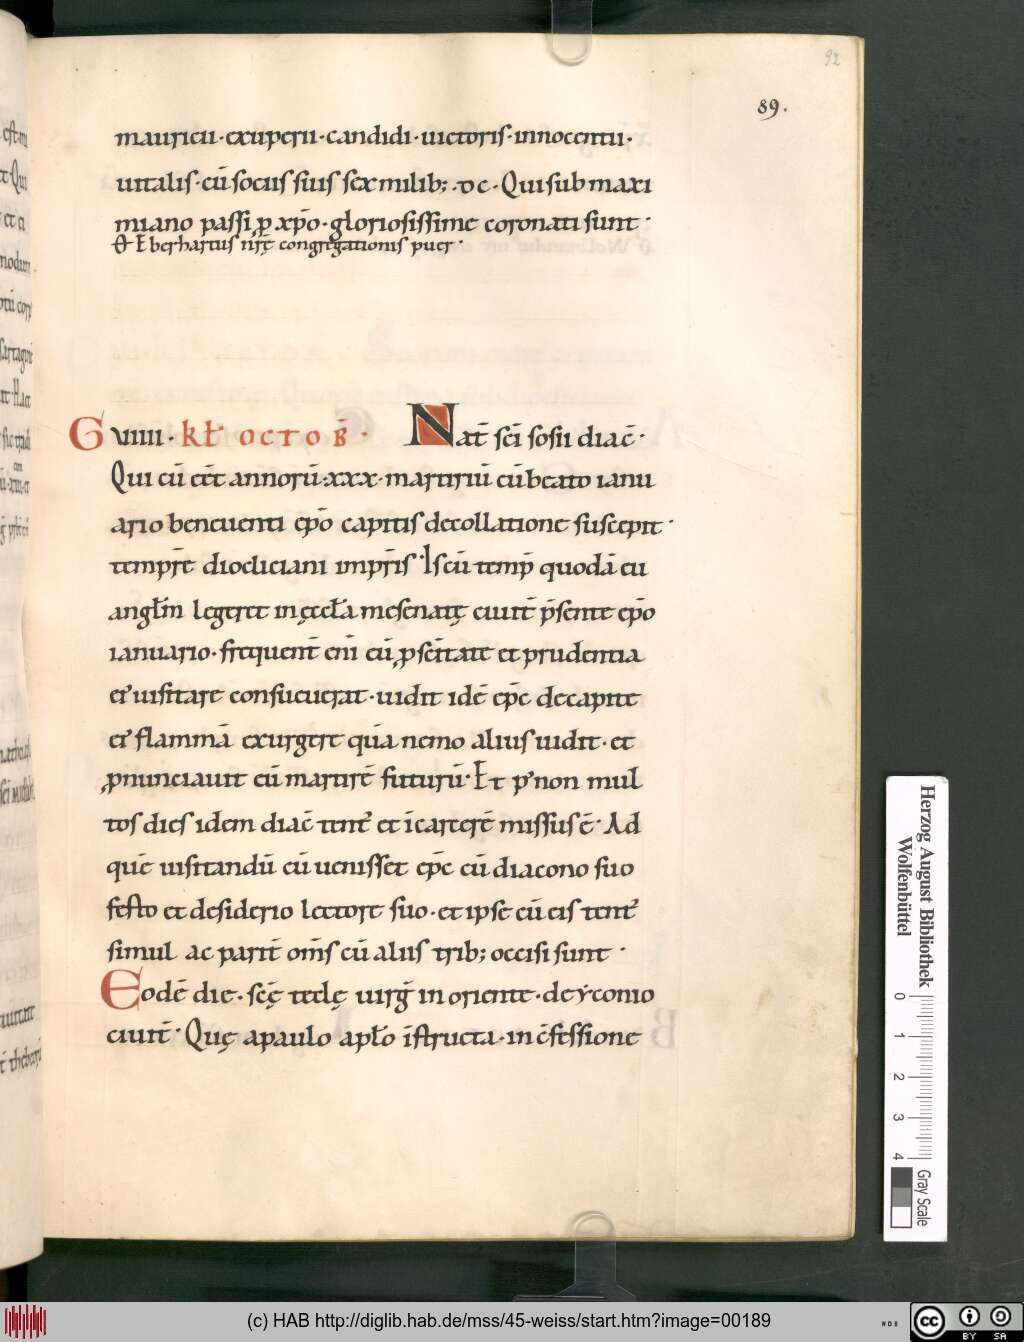 92
89.
mauricii· exuperii· candidi· uictoris· innocentii·
uitalis· cū sociis suis sex milib; ·dc· Qui sub maxi
miano passi ꝓ xp̄o· gloriosissime coronati sunt·
Et Eberhartus nr̄ę congregationis puer·
G VIIII· kł OCTOB̄· Nat̄ sc̄i sosii diac̄·
Qui cū eēt annorū ·xxx· martiriū cū beato ianu
ario beneuenti ep̄o capitis decollatione suscepit·
tempr̄e diocliciani imp̄ris· Is cū temp̄ quodā eu
angłm legeret in ęccła mesenatę ciuit̄ p̄sente ep̄o
ianuario· frequent̄ eni̅ eū ꝓ sc̄itate et prudentia
ei᾽ uisitare consueuerat· uidit idē ep̄c de capite
ei᾽ flammā exurgere quā nemo alius uidit· et
ꝓnunciauit eū martirē futurū· Et p᾽ non mul
tos dies idem diac̄ tent᾽ et ī carcerē missus ē· Ad
quē uisitandū cū uenisset ep̄c cū diacono suo
festo et desiderio lectore suo· et ipse cū eis tent᾽
simul ac parit̄ om̄s cū aliis trib; occisi sunt·
Eodē die· sc̄ę teclę uirḡ in oriente· de yconio
ciuit̄· Quę a paulo apło īstructa· in c̄fessione
Herzog August Bibliothek
Wolfenbüttel
0 1 2 3 4
Gray Scale
(c) HAB http://diglib.hab.de/mss/45-weiss/start.htm?image=00189
WDB
cc BY SA